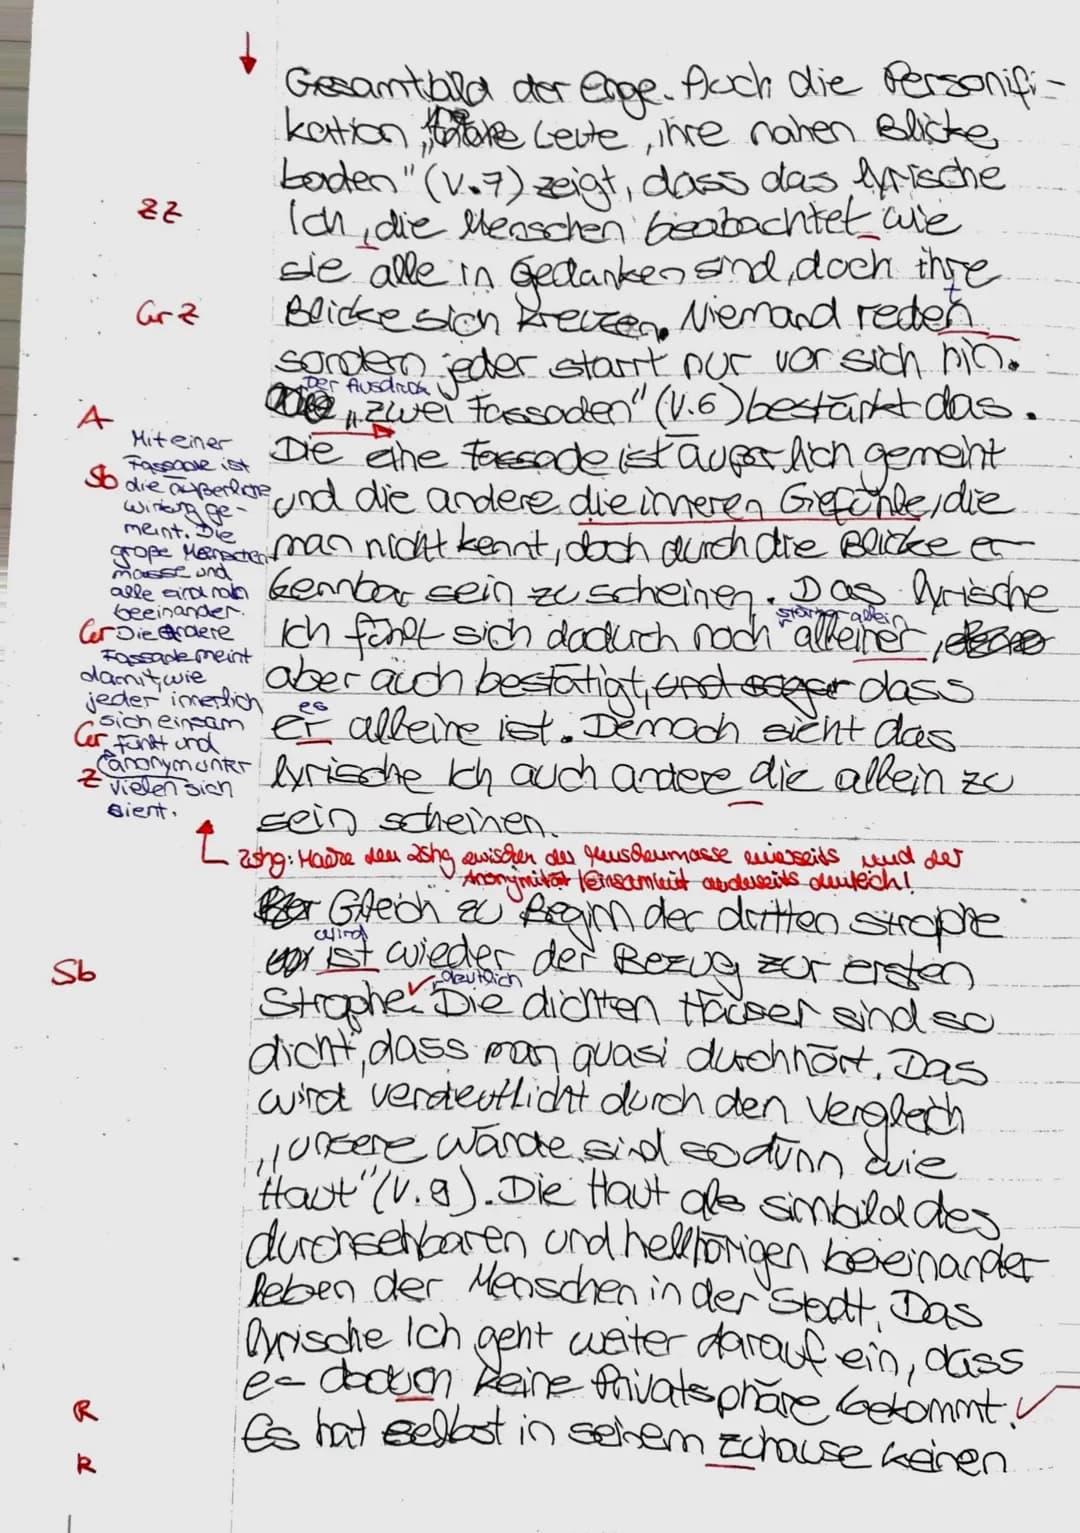 Gesamtbild der Enge. Auch die Personifi-
kation „ Leute, ihre nahen Blicke
baden" (V.7) zeigt, dass das lyrische
ZZ
Ich, die Menschen beobachtet wie
sie alle in Gedanken sind, doch ihre
Gr Z
Blicke sich kreuzen. Niemand reden
t
sondern jeder starrt nur vor sich hin.
Der Ausdruck
„zwei Fassaden" (V.6) bestärkt das.
A
Die eine Fassade ist äußerlich gemeint
Sb
und die andere die inneren Gefühle, die
man nicht kennt, doch durch die Blicke er-
kennbar sein zu scheinen. Das lyrische
stärker allein
Gr
Ich fühlt sich dadurch noch alleiner,
aber auch bestätigt, und sogar dass
es
Gr
er alleine ist. Demnach sieht das
Z
lyrische Ich auch andere die allein zu
sein scheinen.
Mit einer
Fassade ist
die äußerliche
Wirkung ge-
meint. Die
große Menschen
masse und
alle sind nah
beeinander.
Die andere
Fassade meint
damit, wie
jeder innerlich
sich einsam
fühlt und
anonym unter
vielen sich
sieht.
Zshg: Mache den Zshg zwischen der Menschenmasse einerseits und der
Anonymität / Einsamkeit anderseits deutlich!
Gleich zu Beginn der dritten Strophe
wird
Sb
ist wieder der Bezug zur ersten
deutlich
Strophe. Die dichten Häuser sind so
dicht, dass man quasi durchhört. Das
wird verdeutlicht durch den Vergleich
„unsere Wände sind so dünn wie
Haut" (V.9). Die Haut als simbild des
durchsehbaren und hellhörigen beieinander
leben der Menschen in der Stadt. Das
lyrische Ich geht weiter darauf ein, dass
es daduch keine Privatsphäre bekommt.
R
Es hat selbst in seinem zuhause keinen
R